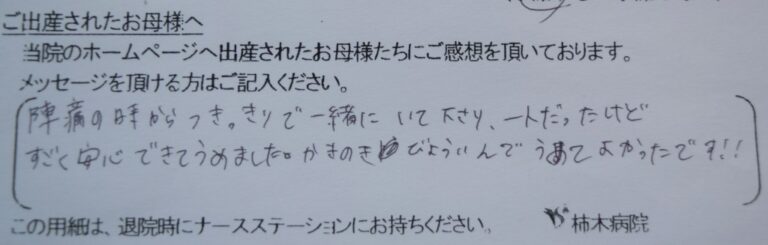 ご出産されたお母様へ
当院のホームページへ出産されたお母様たちにご感想を頂いております。
メッセージを頂ける方はご記入ください。
陣痛の時からつきっきりで一緒にいて下さり、一人だったけど
すごく安心できてうめました。かきのきびょういんでうめてよかったです!!
この用紙は、退院時にナースステーションにお持ちください。 柿木病院